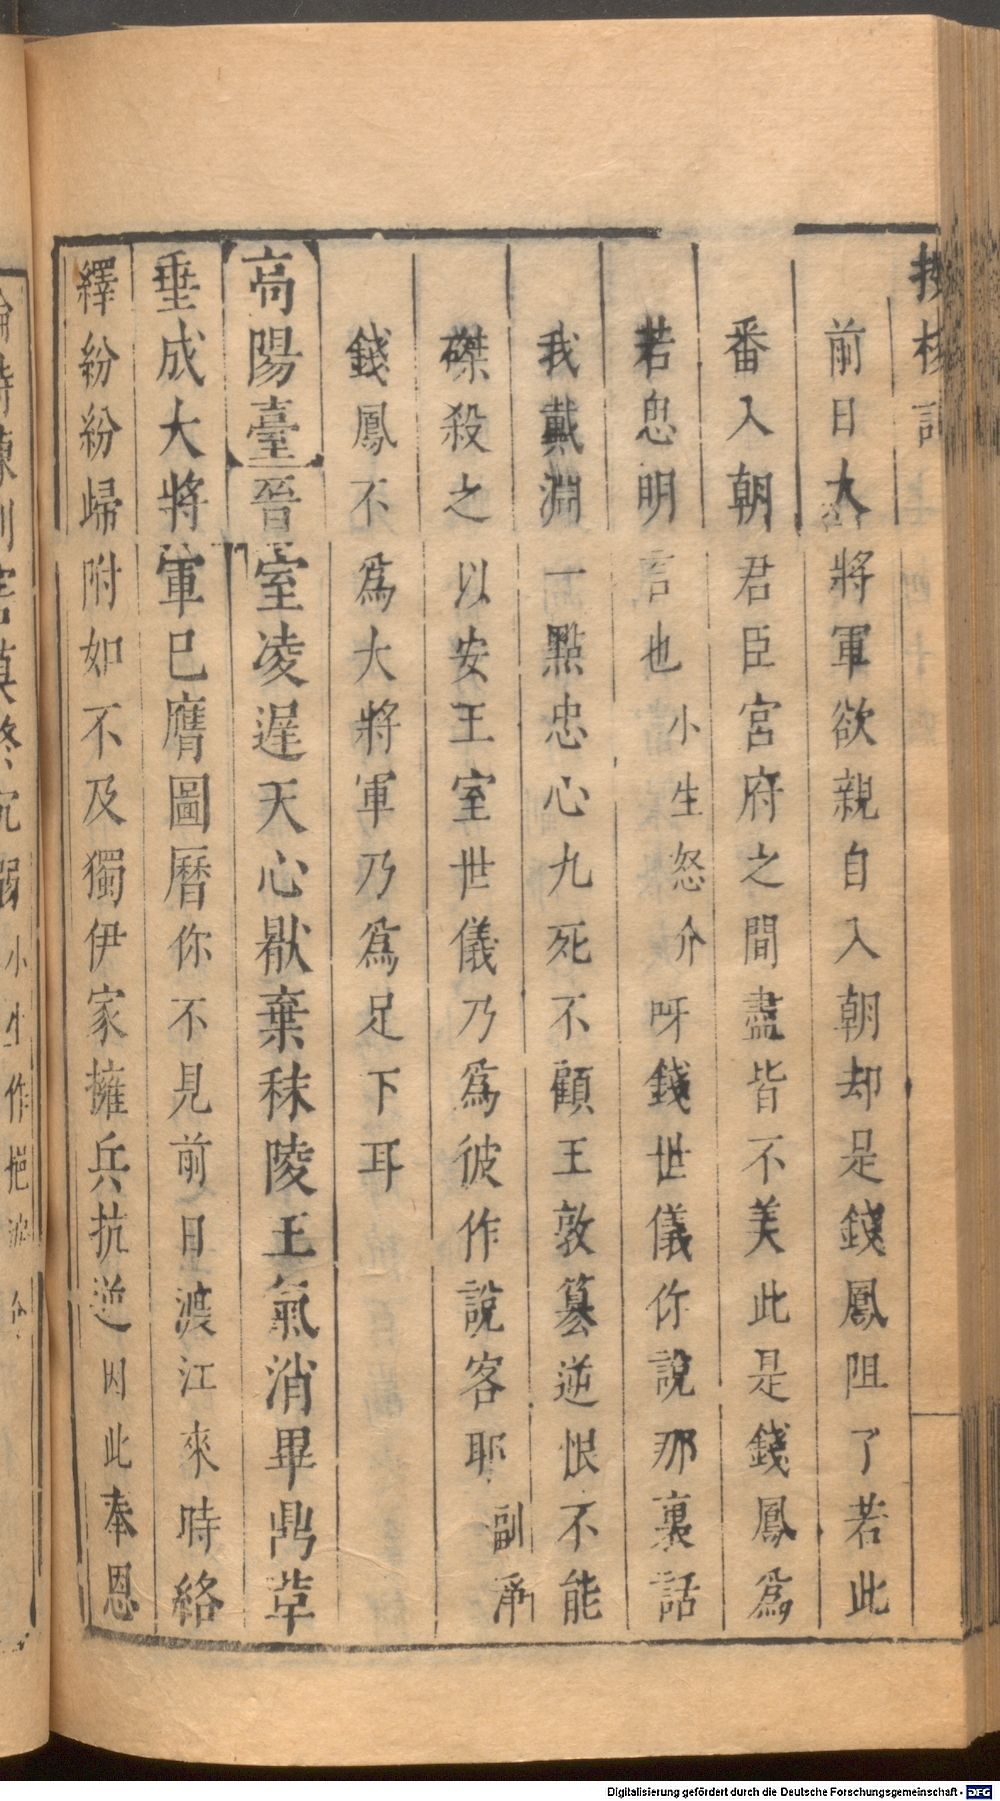 投梭記
前日大將軍欲親自入朝却是錢鳳阻了若此
番入朝君臣宮府之間盡皆不美此是錢鳳爲
若忠明言也小生怒介呀錢世儀你說那裏話
我戴淵一點忠心九死不顧王敦篡逆恨不能
磔殺之以安王室世儀乃爲彼作說客耶副淨
錢鳳不爲大將軍乃爲足下耳
高陽臺晉室凌遲天心厭棄秣陵王氣消畢鼎草
垂成大將軍已膺圖曆你不見前日渡江來時絡
繹紛紛歸附如不及獨伊家擁兵抗逆因此奉恩
小生作
Digitalisierung gefördert durch die Deutsche Forschungsgemeinschaft - DFG